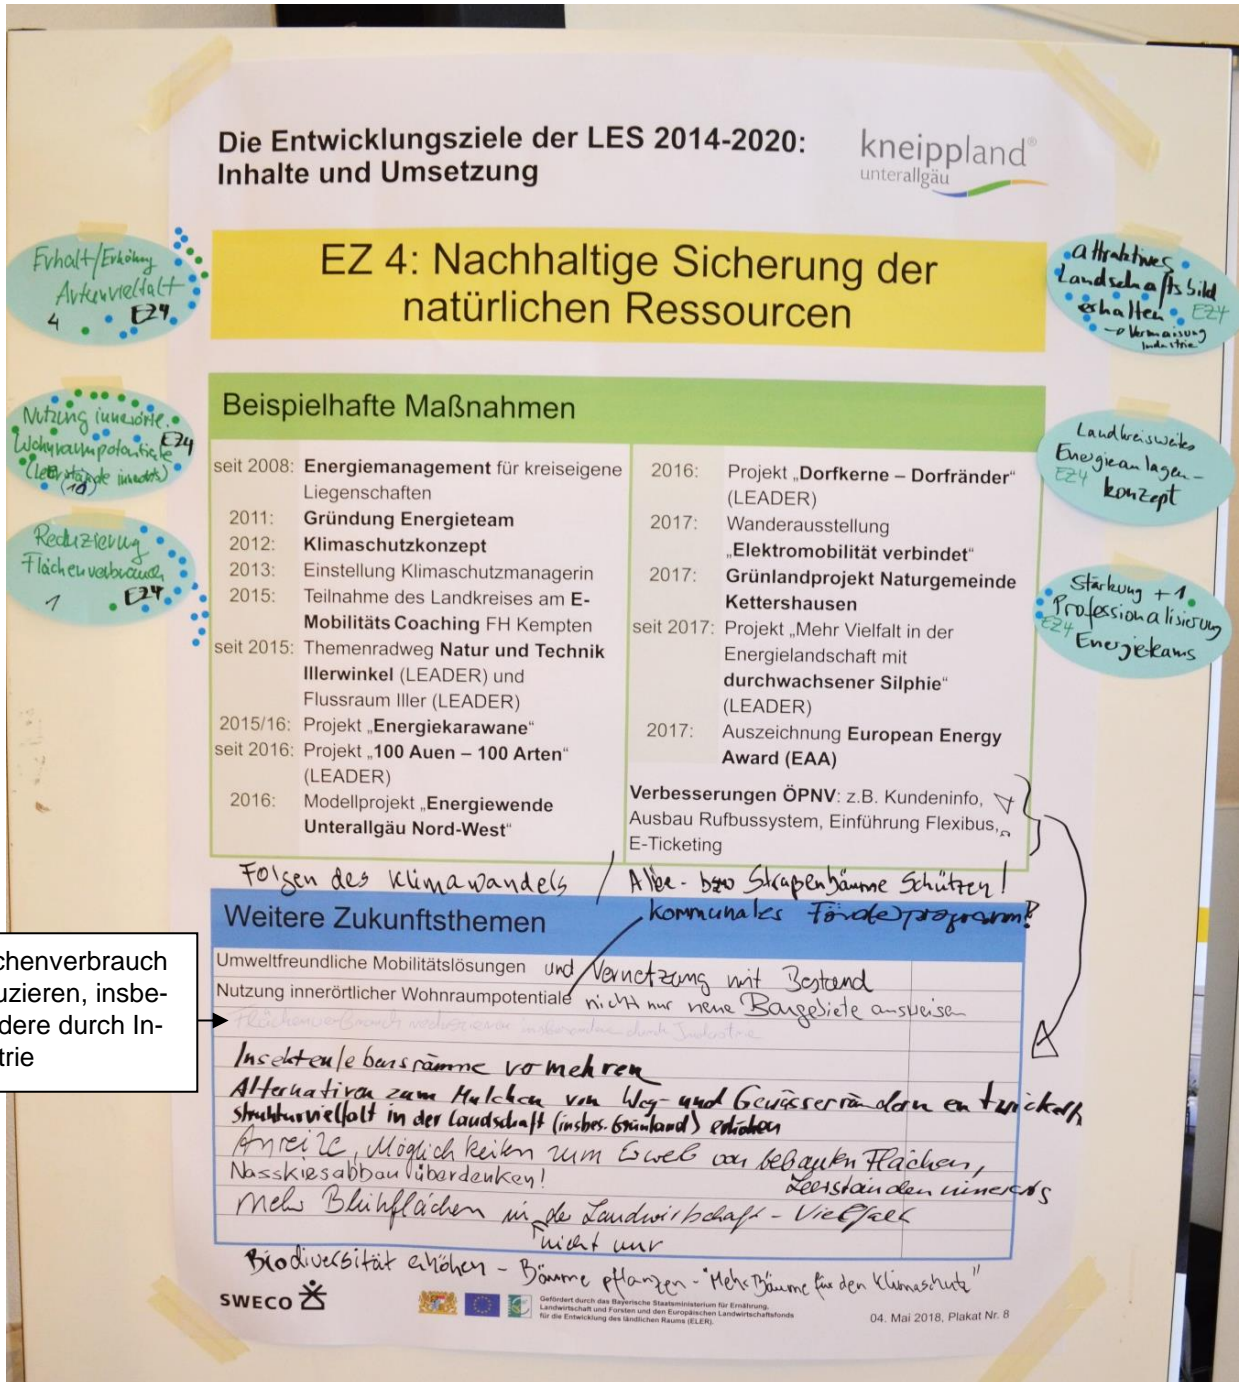 Die Entwicklungsziele der LES 2014-2020:
Inhalte und Umsetzung
kneippland®
unterallgäu
EZ 4: Nachhaltige Sicherung der
natürlichen Ressourcen
Erhalt/Erhöhung
Artenvielfalt
4 EZ4
Nutzung innerörtl.
Wohnraumpotentiale EZ4
(Leerstände innerorts)
(10)
Reduzierung
Flächenverbrauch
1 EZ4
attraktives
Landschaftsbild
erhalten EZ4
→ Vermaisung
Industrie
Landkreisweites
Energieanlagen-
EZ4 konzept
Stärkung + 1
Professionalisierung
EZ4 Energieteams
Beispielhafte Maßnahmen
seit 2008: Energiemanagement für kreiseigene
Liegenschaften
2011: Gründung Energieteam
2012: Klimaschutzkonzept
2013: Einstellung Klimaschutzmanagerin
2015: Teilnahme des Landkreises am E-
Mobilitäts Coaching FH Kempten
seit 2015: Themenradweg Natur und Technik
Illerwinkel (LEADER) und
Flussraum Iller (LEADER)
2015/16: Projekt „Energiekarawane“
seit 2016: Projekt „100 Auen – 100 Arten“
(LEADER)
2016: Modellprojekt „Energiewende
Unterallgäu Nord-West“
2016: Projekt „Dorfkerne – Dorfränder“
(LEADER)
2017: Wanderausstellung
„Elektromobilität verbindet“
2017: Grünlandprojekt Naturgemeinde
Kettershausen
seit 2017: Projekt „Mehr Vielfalt in der
Energielandschaft mit
durchwachsener Silphie“
(LEADER)
2017: Auszeichnung European Energy
Award (EAA)
Verbesserungen ÖPNV: z.B. Kundeninfo,
Ausbau Rufbussystem, Einführung Flexibus,
E-Ticketing
Folgen des Klimawandels / Allee- bzw Straßenbäume Schützen!
Weitere Zukunftsthemen
kommunales Förderprogramm?
Umweltfreundliche Mobilitätslösungen und Vernetzung mit Bestand
Nutzung innerörtlicher Wohnraumpotentiale nicht nur neue Baugebiete ausweisen
Flächenverbrauch reduzieren insbesondere durch Industrie
chenverbrauch
uzieren, insbe-
dere durch In-
trie
Insektenlebensräume vermehren
Alternativen zum Mulchen von Weg- und Gewässerrändern entwickeln
Strukturvielfalt in der Landschaft (insbes. Grünland) erhöhen
Anreize, Möglichkeiten zum Erwerb von bebauten Flächen,
Leerständen innerorts
Nasskiesabbau überdenken!
mehr Blühflächen in der Landwirtschaft - Vielfalt
nicht nur
Biodiversität erhöhen - Bäume pflanzen - "Mehr Bäume für den Klimaschutz"
SWECO
Gefördert durch das Bayerische Staatsministerium für Ernährung,
Landwirtschaft und Forsten und den Europäischen Landwirtschaftsfonds
für die Entwicklung des ländlichen Raums (ELER).
04. Mai 2018, Plakat Nr. 8